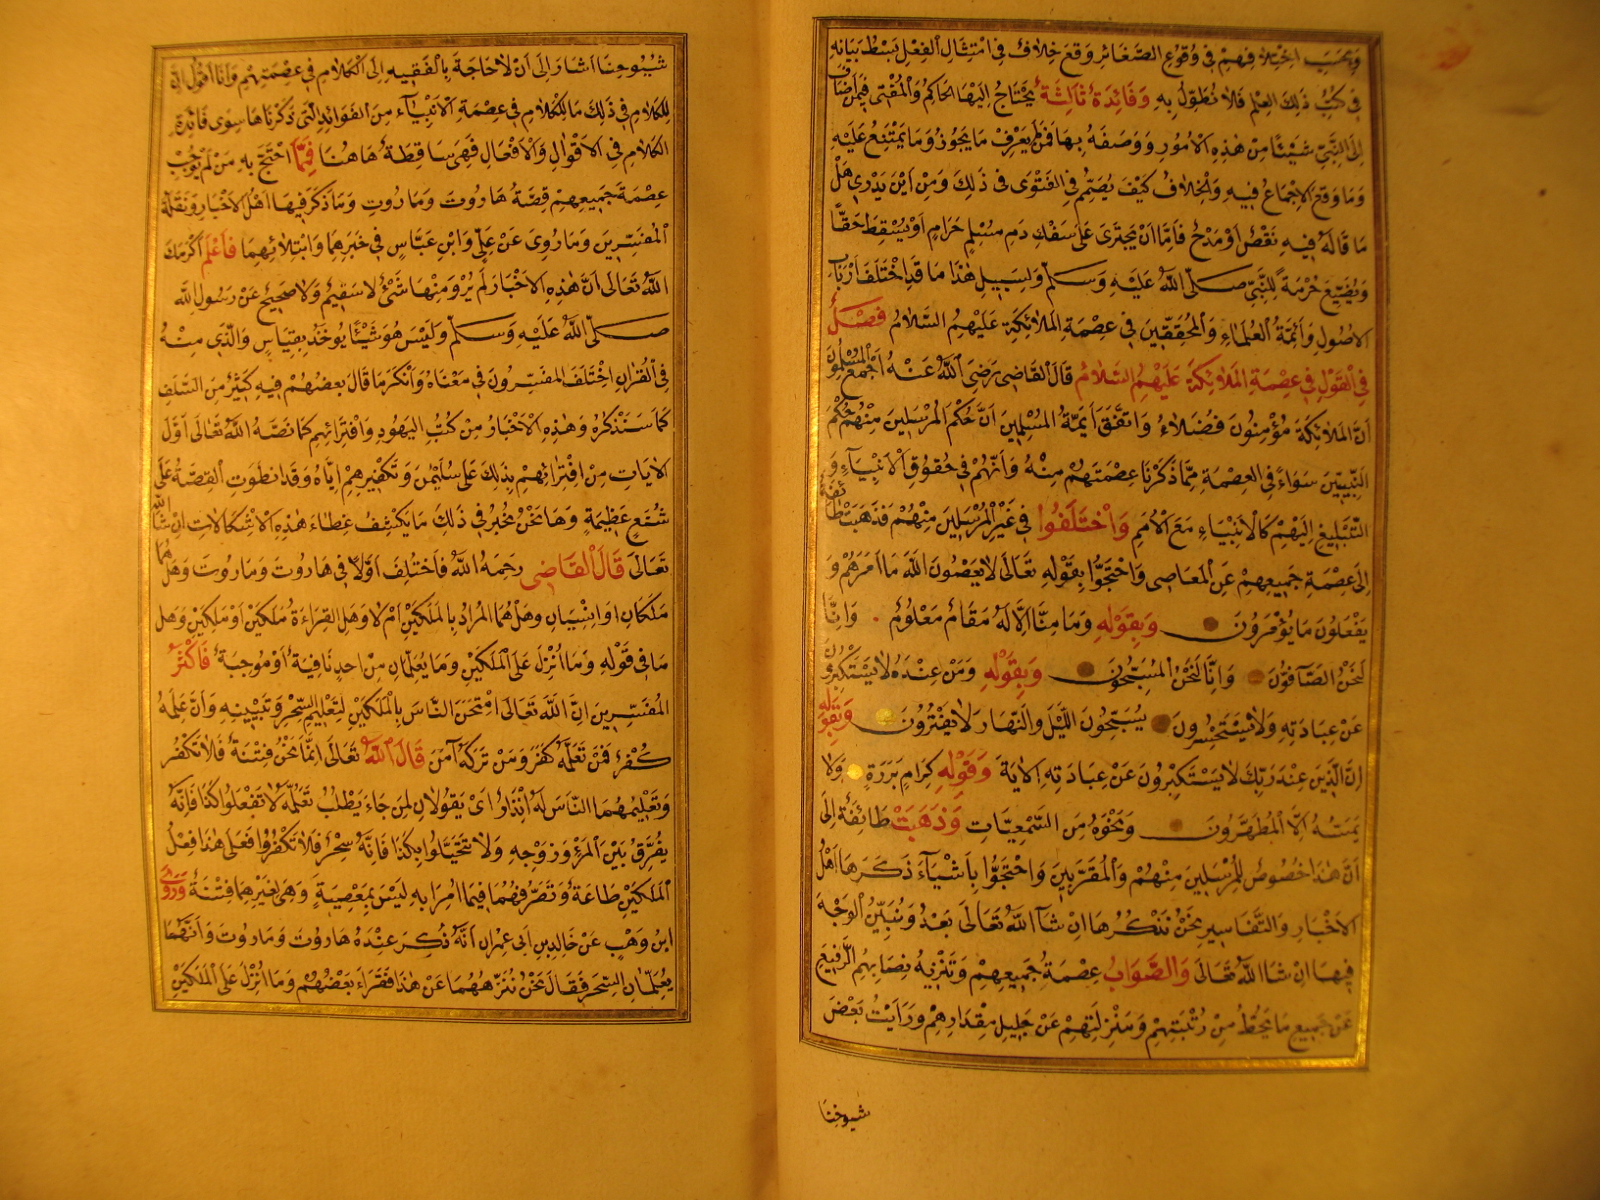 وبحسب اختلافهم في وقوع الصغائر وقع خلاف في امتثال الفعل بسط بيانه
في كتب ذلك العلم فلا نطول به وفائدة ثالثة يحتاج اليها الحاكم والمفتى فيمن اضاف
الى النبي شيئا من هذه الامور ووصفه بها فمن لم يعرف ما يجوز وما يمتنع عليه
وما وقع الاجماع فيه والخلاف كيف يصمم في الفتوى في ذلك ومن اين يدرى هل
ما قاله فيه نقص او مدح فاما ان يجترى على سفك دم مسلم حرام او يسقط حقا
ويضيع حرمة للنبي صلى الله عليه وسلم ولسبيل هذا ما قد اختلف ارباب
الاصول وائمة العلماء والمحققين في عصمة الملائكة عليهم السلام فصل
في القول في عصمة الملائكة عليهم السلام قال القاضى رضى الله عنه اجمع المسلمون
ان الملائكة مؤمنون فضلاء واتفق ايمة المسلمين ان حكم المرسلين منهم حكم
النبيين سواء في العصمة مما ذكرنا عصمتهم منه وانهم في حقوق الانبياء و
التبليغ اليهم كالانبياء مع الامم واختلفوا في غير المرسلين منهم فذهبت طائفة
الى عصمة جميعهم عن المعاصى واحتجوا بقوله تعالى لا يعصون الله ما امرهم و
يفعلون ما يؤمرون وبقوله وما منا الا له مقام معلوم وانا
لنحن الصافون وانا لنحن المسبحون وبقوله ومن عنده لا يستكبرون
عن عبادته ولا يستحسرون يسبحون الليل والنهار لا يفترون وبقوله
ان الذين عند ربك لا يستكبرون عن عبادته الاية وقوله كرام بررة ولا
يمسه الا المطهرون ونحوه من السمعيات وذهبت طائفة الى
ان هذا خصوص للمرسلين منهم والمقربين واحتجوا باشياء ذكرها اهل
الاخبار والتفاسير نحن نذكرها ان شا الله تعالى بعد ونبين الوجه
فيها ان شا الله تعالى والصواب عصمة جميعهم وتنزيه نصابهم الرفيع
عن جميع ما يحط من رتبتهم ومنزلتهم عن جليل مقدارهم ورايت بعض
شيوخنا
شيوخنا اشار الى ان لا حاجة بالفقيه الى الكلام في عصمتهم وانا اقول ان
للكلام في ذلك ما للكلام في عصمة الانبياء من الفوائد التى ذكرناها سوى فائدة
الكلام في الاقوال والافعال فهى ساقطة هاهنا فما احتج به من لم يوجب
عصمة جميعهم قصة هاروت وماروت وما ذكر فيها اهل الاخبار ونقلة
المفسرين وما روى عن على وابن عباس في خبرهما وابتلائهما فاعلم اكرمك
الله تعالى ان هذه الاخبار لم يرو منها شئ لا سقيم ولا صحيح عن رسول الله
صلى الله عليه وسلم وليس هو شيئا يوخذ بقياس والذى منه
في القران اختلف المفسرون في معناه وانكر ما قال بعضهم فيه كثير من السلف
كما سنذكره وهذه الاخبار من كتب اليهود وافترائهم كما نصه الله تعالى اول
الايات من افترائهم بذلك على سليمن وتكفيرهم اياه وقد انطوت القصة على
شنع عظيمة وها نحن نخبر في ذلك ما يكشف غطاء هذه الاشكالات ان شا الله
تعالى قال القاضى رحمه الله فاختلف اولا في هاروت وماروت وهل هما
ملكان او انسيان وهل هما المراد بالملكين ام لا وهل القراءة ملكين او ملكين وهل
ما في قوله وما انزل على الملكين وما يعلمان من احد نافية او موجبة فاكثر
المفسرين ان الله تعالى امتحن الناس بالملكين لتعليم السحر وتبيينه وان علمه
كفر فمن تعلمه كفر ومن تركه آمن قال الله تعالى انما نحن فتنة فلا تكفر
وتعليمهما الناس له انذار اى يقولان لمن جاء يطلب تعلمه لا تفعلوا كذا فانه
يفرق بين المرء وزوجه ولا تتحيلوا بكذا فانه سحر فلا تكفروا فعلى هذا فعل
الملكين طاعة وتصرفهما فيما امرا به ليس بمعصية وهى لغيرهما فتنة وروى
ابن وهب عن خالد بن ابى عمران انه ذكر عنده هاروت وماروت وانهما
يعلمان السحر فقال نحن ننزههما عن هذا فقراء بعضهم وما انزل على الملكين